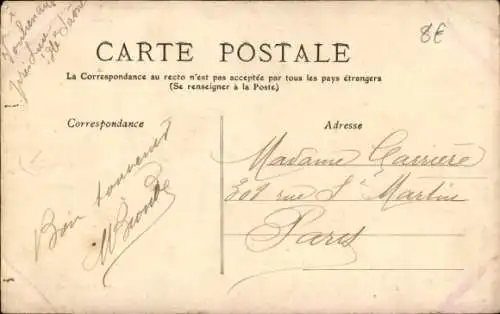 près Lure
Hte Saône
8€
CARTE POSTALE
La Correspondance au recto n'est pas acceptée par tous les pays étrangers
(Se renseigner à la Poste)
Correspondance
Bon souvenir
Adresse
Madame Carrière
309 rue St Martin
Paris